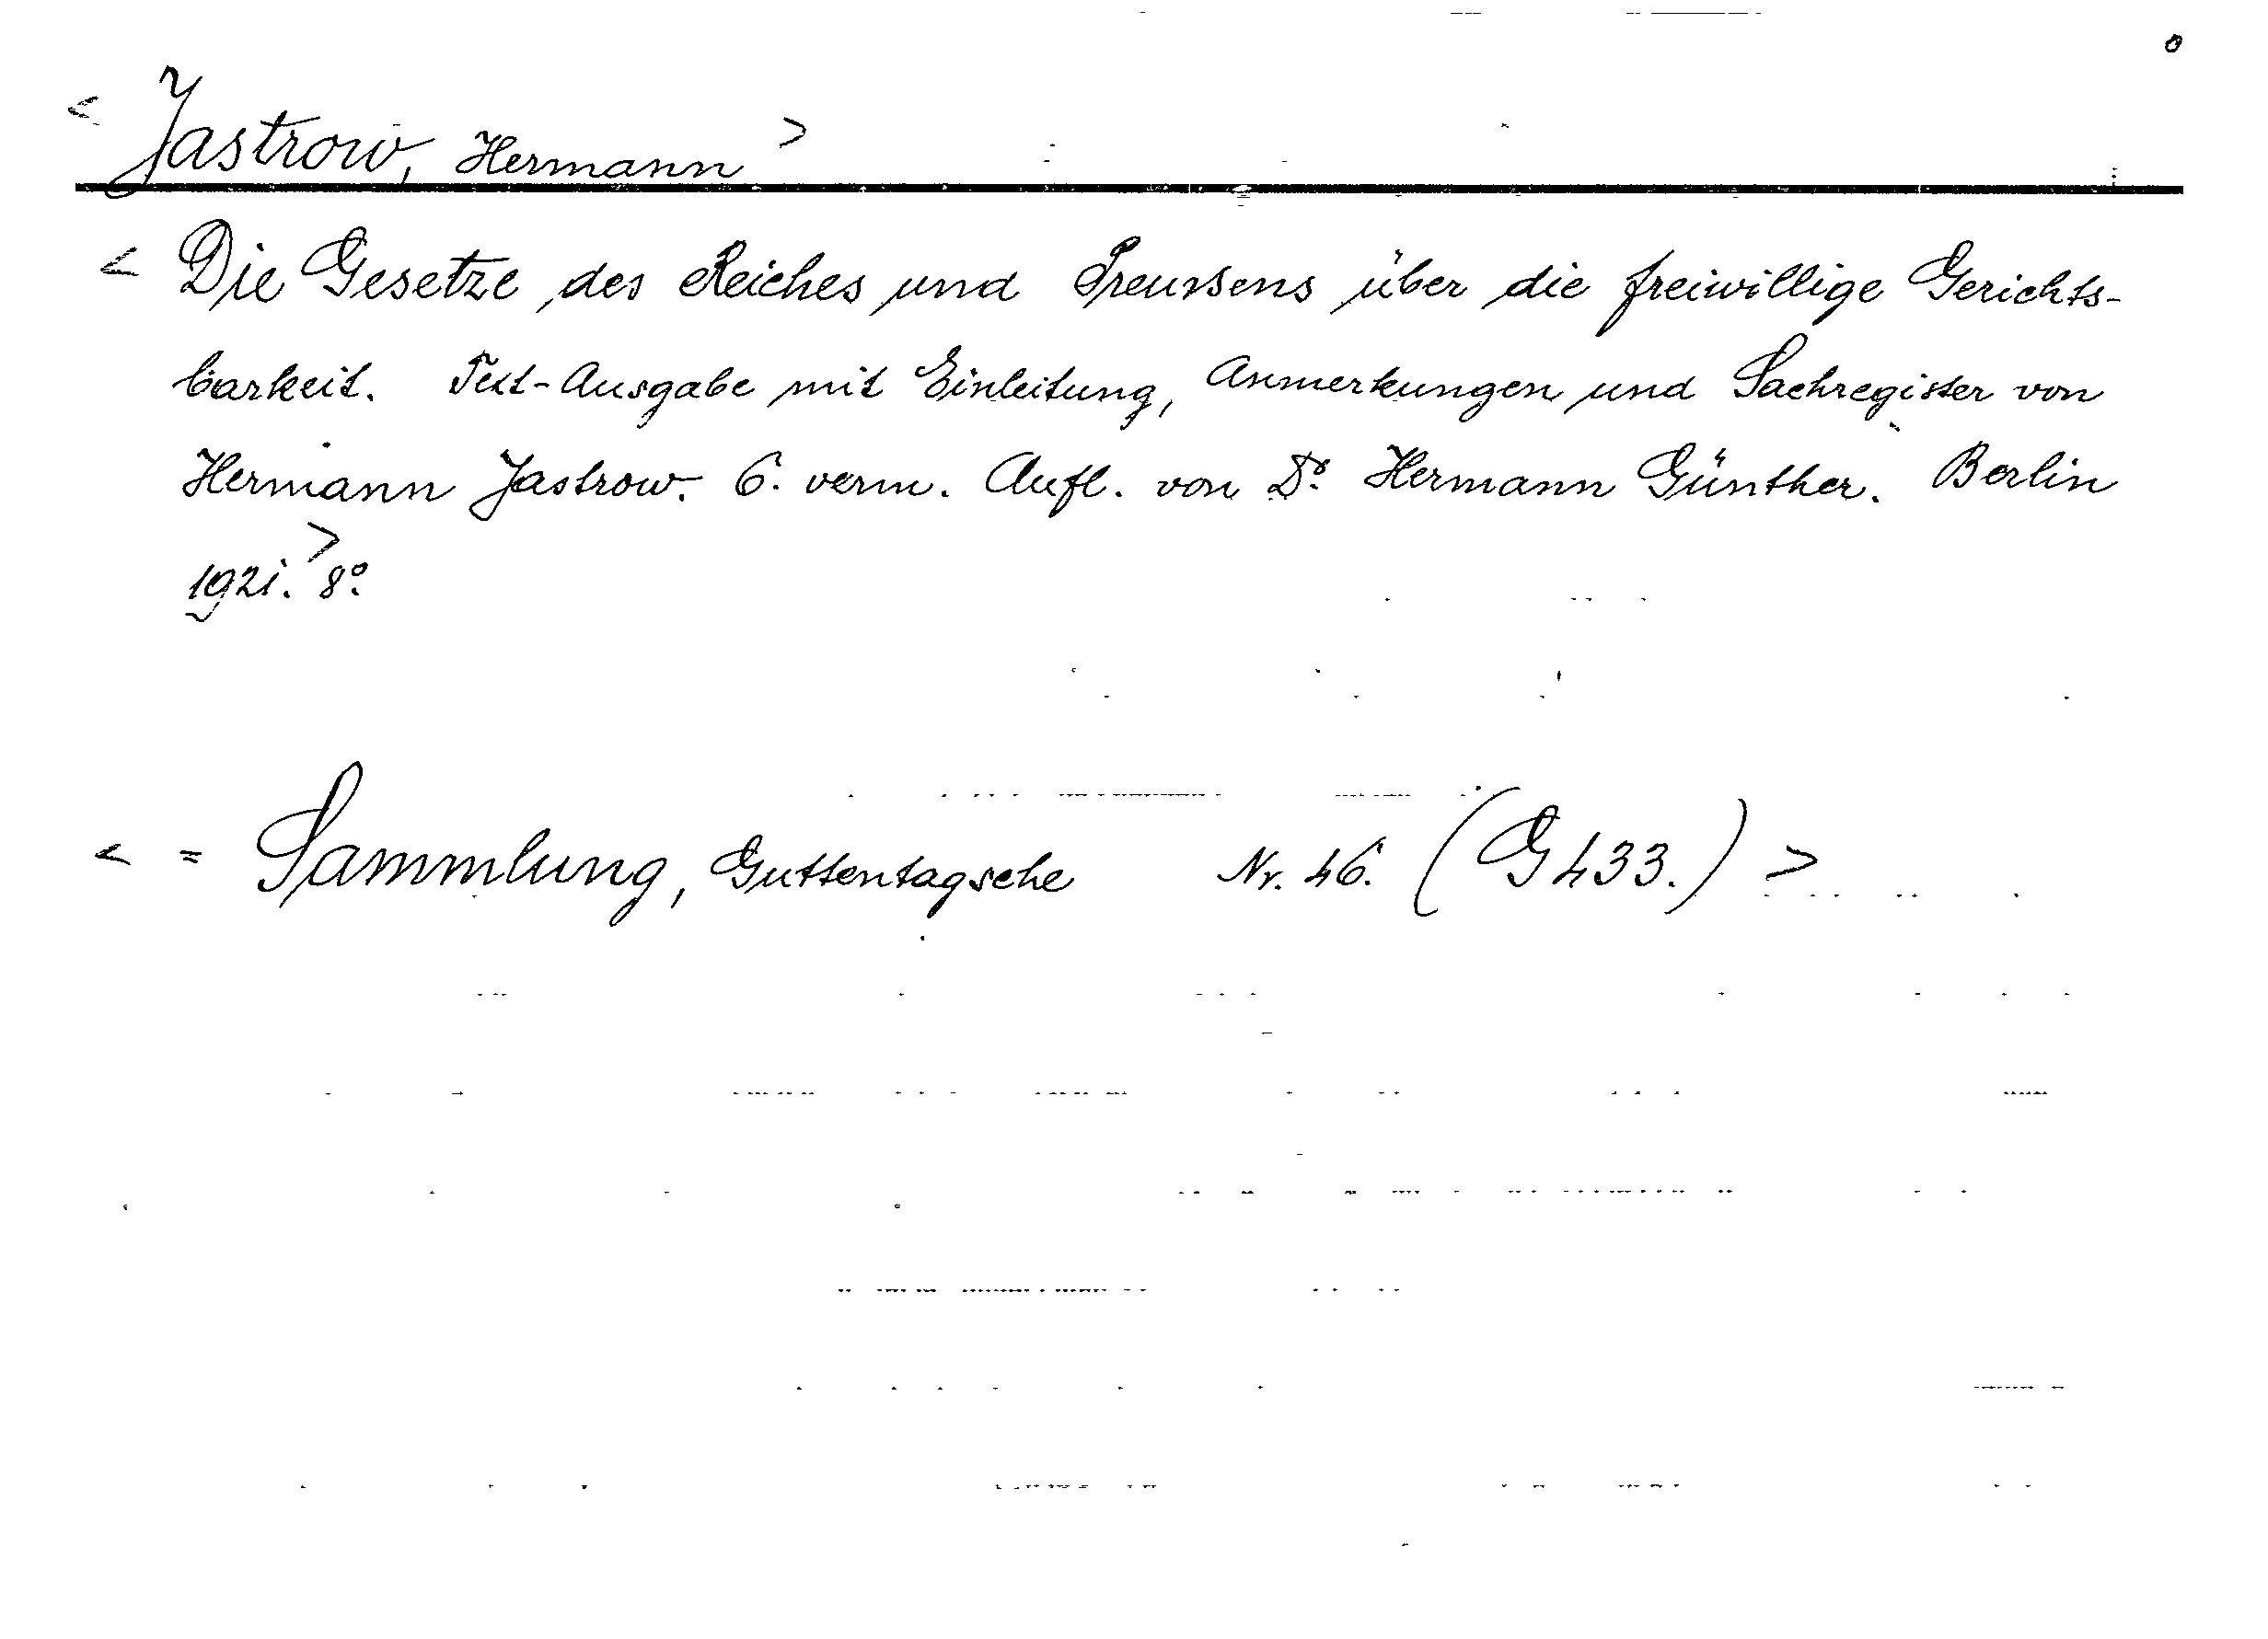 < Jastrow, Hermann >
< Die Gesetze des Reiches und Preussens über die freiwillige Gerichts-
barkeit. Text-Ausgabe mit Einleitung, Anmerkungen und Sachregister von
Hermann Jastrow. 6. verm. Aufl. von Dr. Hermann Günther. Berlin
1921. > 8°.
< = Sammlung, Guttentagsche Nr. 46. (G 433.) >